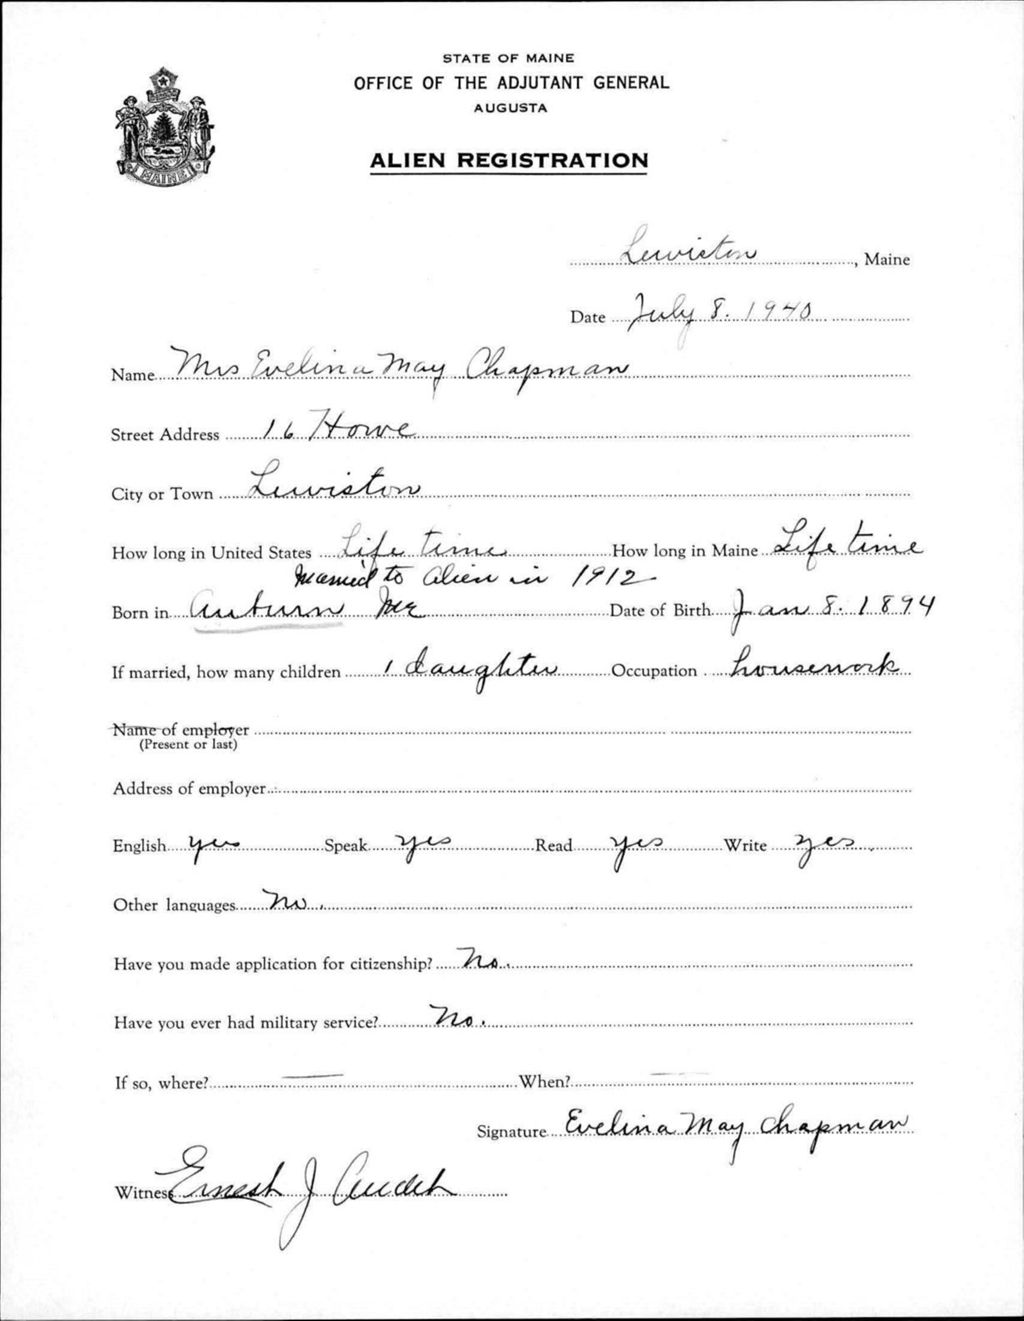 STATE OF MAINE
OFFICE OF THE ADJUTANT GENERAL
AUGUSTA
ALIEN REGISTRATION
MAINE
Lewiston, Maine
Date July 8. 1940
Name Mrs Evelina May Chapman
Street Address 16 Howe
City or Town Lewiston
How long in United States Life time How long in Maine Life time
Married to Alien in 1912
Born in Auburn Me Date of Birth Jan 8. 1894
If married, how many children 1 daughter Occupation housework
Name of employer
(Present or last)
Address of employer
English yes Speak yes Read yes Write yes
Other languages No.
Have you made application for citizenship? No.
Have you ever had military service? No.
If so, where? — When? —
Signature Evelina May Chapman
Witness Ernest J Audet